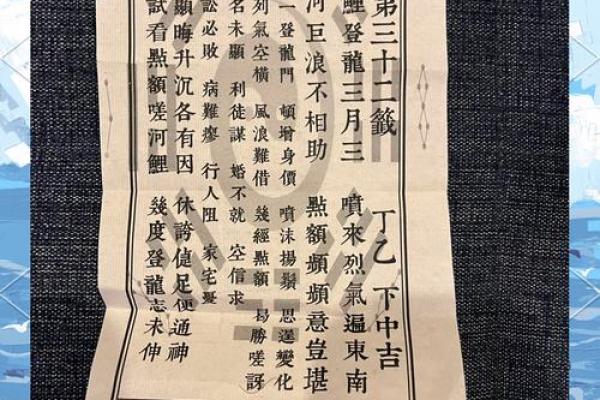 第三十二籤 丁乙 下中吉
鯉登龍三月三 噴來烈氣遍東南
河巨浪不相助 點額頻頻意豈堪
一登龍門 頓增身價 噴沫揚鬚 思逞變化
列氣空橫 風浪難借 幾經點額 曷勝嗟訝
名未顯 利徒謀 婚不就 空信求
訟必敗 病難瘳 行人阻 家宅憂
顯晦升沉各有因 休誇值足便通神
試看點額嗟河鯉 幾度登龍志未伸